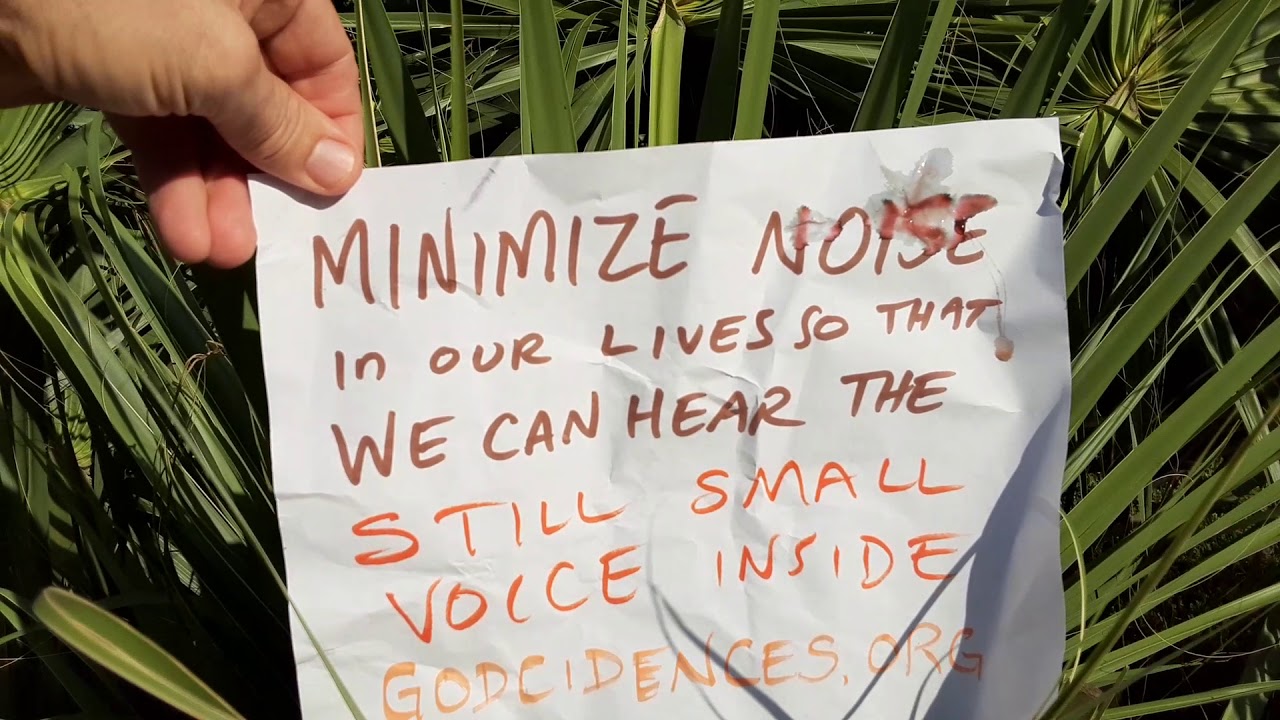 MINIMIZE NOISE
In OUR LIVES SO THAT
WE CAN HEAR THE
STILL SMALL
VOICE INSIDE
GODCIDENCES.ORG